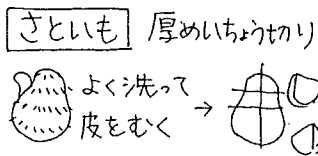 さといも 厚めいちょう切り
よく洗って
皮をむく →